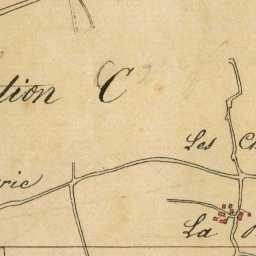 tion C
Les Ch
rie
La